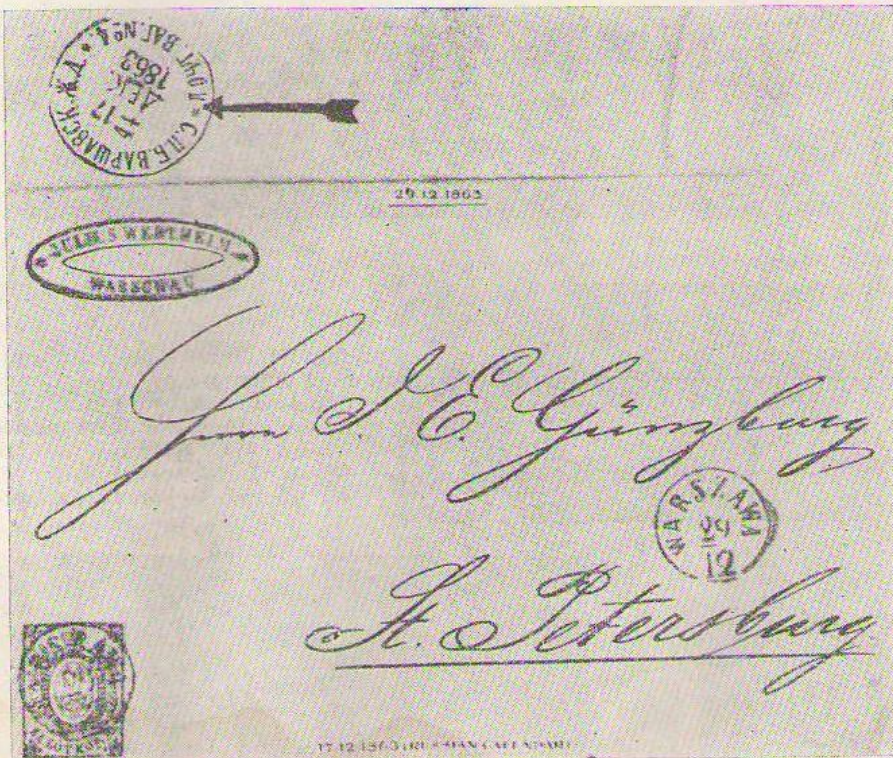 С.П.Б. ВАРШАВСК. Ж.Д. * ПОЧТ. ВАГ. №4 *
17
ДЕК
1863
29.12.1863
JULIUS WERTHEIM
WARSCHAU
Herrn J. E. Günzburg
WARSZAWA
29
12
St. Petersburg
17.12.1863 (RUSSIAN CALENDAR)